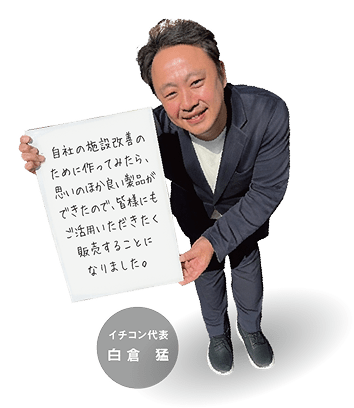 自社の施設改善の
ために作ってみたら、
思いのほか良い製品が
できたので、皆様にも
ご活用いただきたく
販売することに
なりました。
イチコン代表
白倉 猛